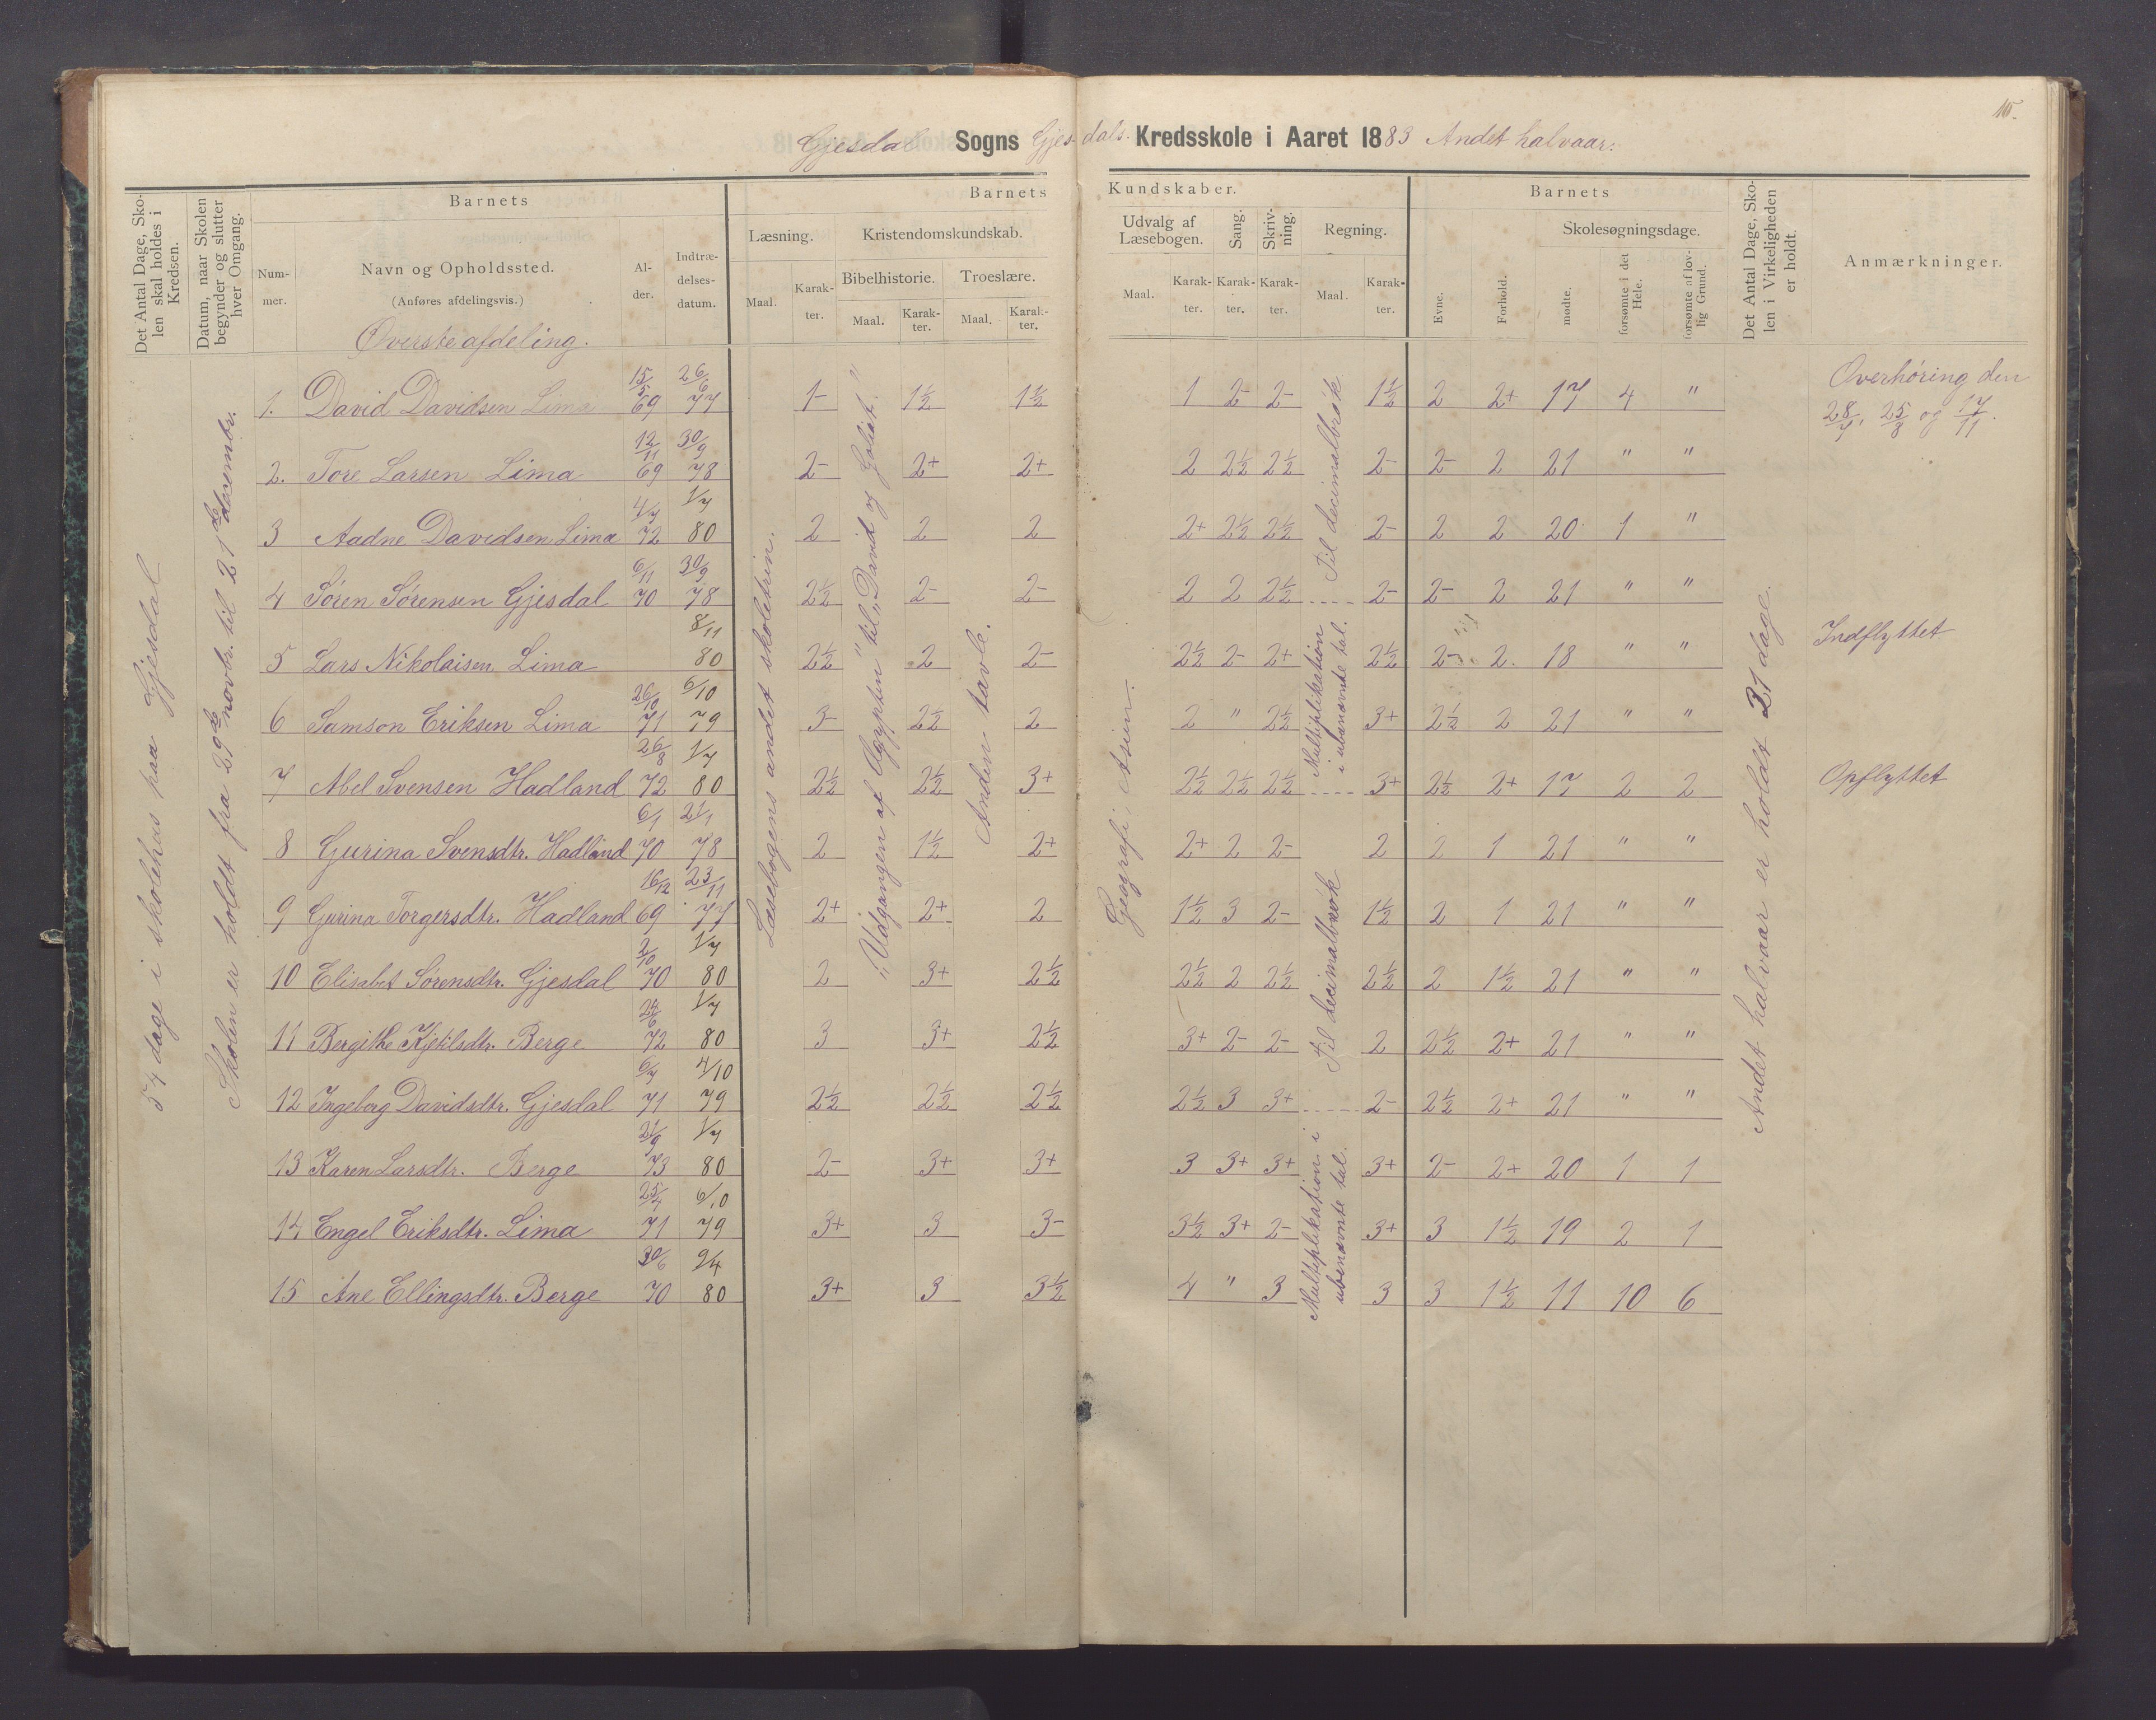 15.
Gjesdal Sogns Gjesdals Kredsskole i Aaret 1883 Andet halvaar.
Det Antal Dage, Skolen skal holdes i Kredsen.
Datum, naar Skolen begynder og slutter hver Omgang.
Barnets
Nummer.
Navn og Opholdssted.
(Anføres afdelingsvis.)
Alder.
Indtrædelsesdatum.
Barnets Kundskaber.
Læsning.
Maal. Karakter.
Kristendomskundskab.
Bibelhistorie.
Maal. Karakter.
Troeslære.
Maal. Karakter.
Udvalg af Læsebogen.
Maal. Karakter.
Sang.
Karakter.
Skrivning.
Karakter.
Regning.
Maal. Karakter.
Barnets
Evne.
Forhold.
Skolesøgningsdage.
mødte.
forsømte i det Hele.
forsømte af lovlig Grund.
Det Antal Dage, Skolen i Virkeligheden er holdt.
Anmærkninger.
Øverste afdeling.
54 dage i skolehus paa Gjesdal
Skolen er holdt fra 29de novbr. til 21de decembr.
Læsebogens andet skoletrin.
"Udgangen af Ægypten" til "David og Goliat."
Anden tavle.
Geografi, Asien.
Til decimalbrøk
Multiplikation i ubenævnte tal.
Til decimalbrøk
Multiplikation i ubenævnte tal.
Andet halvaar er holdt 21 dage.
1. David Davidsen Lima 15/5 69 26/6 77 1- 1½ 1½ 1 2- 2- 1½ 2 2+ 17 4 " Overhøring den 28/7, 25/8 og 17/11.
2. Tore Larsen Lima 12/11 69 30/9 78 2- 2+ 2+ 2 2½ 2½ 2- 2- 2 21 " "
3 Aadne Davidsen Lima 4/7 72 1/7 80 2 2 2 2+ 2½ 2½ 2- 2 2 20 1 "
4 Søren Sørensen Gjesdal 6/11 70 30/9 78 2½ 2- 2- 2 2 2½ 2- 2- 2 21 " "
5 Lars Nikolaisen Lima 8/11 80 2½ 2 2- 2½ 2- 2+ 2½ 2- 2. 18 " " Indflyttet
6 Samson Eriksen Lima 26/10 71 6/10 79 3- 2½ 2 2 " 2½ 3+ 2½ 2 21 " "
7 Abel Svensen Hadland 26/8 72 1/7 80 2½ 2½ 3+ 2½ 2½ 2½ 3+ 2½ 2+ 17 2 2 Opflyttet
8 Gurina Svensdtr. Hadland 6/1 70 21/1 78 2 1½ 2+ 2+ 2 2- 2 2 1 21 " "
9 Gurina Torgersdtr. Hadland 16/12 69 23/11 77 2+ 2+ 2 1½ 3 2- 1½ 2 1 21 " "
10 Elisabet Sørensdtr. Gjesdal 2/10 70 1/7 80 2 3+ 2½ 2½ 2 2½ 2½ 2 1½ 21 " "
11 Bergithe Kjetilsdtr. Berge 24/6 72 1/7 80 3 3+ 2½ 3+ 2- 2- 2 2½ 2+ 21 " "
12 Ingeborg Davidsdtr. Gjesdal 6/7 71 4/10 79 2½ 2½ 2½ 2½ 3 3+ 2- 2½ 2+ 21 " "
13 Karen Larsdtr. Berge 21/9 73 1/7 80 2- 3+ 3+ 3 3+ 3+ 3+ 2- 2+ 20 1 1
14 Engel Eriksdtr. Lima 25/4 71 6/10 79 3+ 3 3- 3½ 3+ 2- 3+ 3 1½ 19 2 1
15 Ane Ellingsdtr. Berge 30/6 70 9/4 80 3+ 3 3½ 4 " 3 3 3 1½ 11 10 6